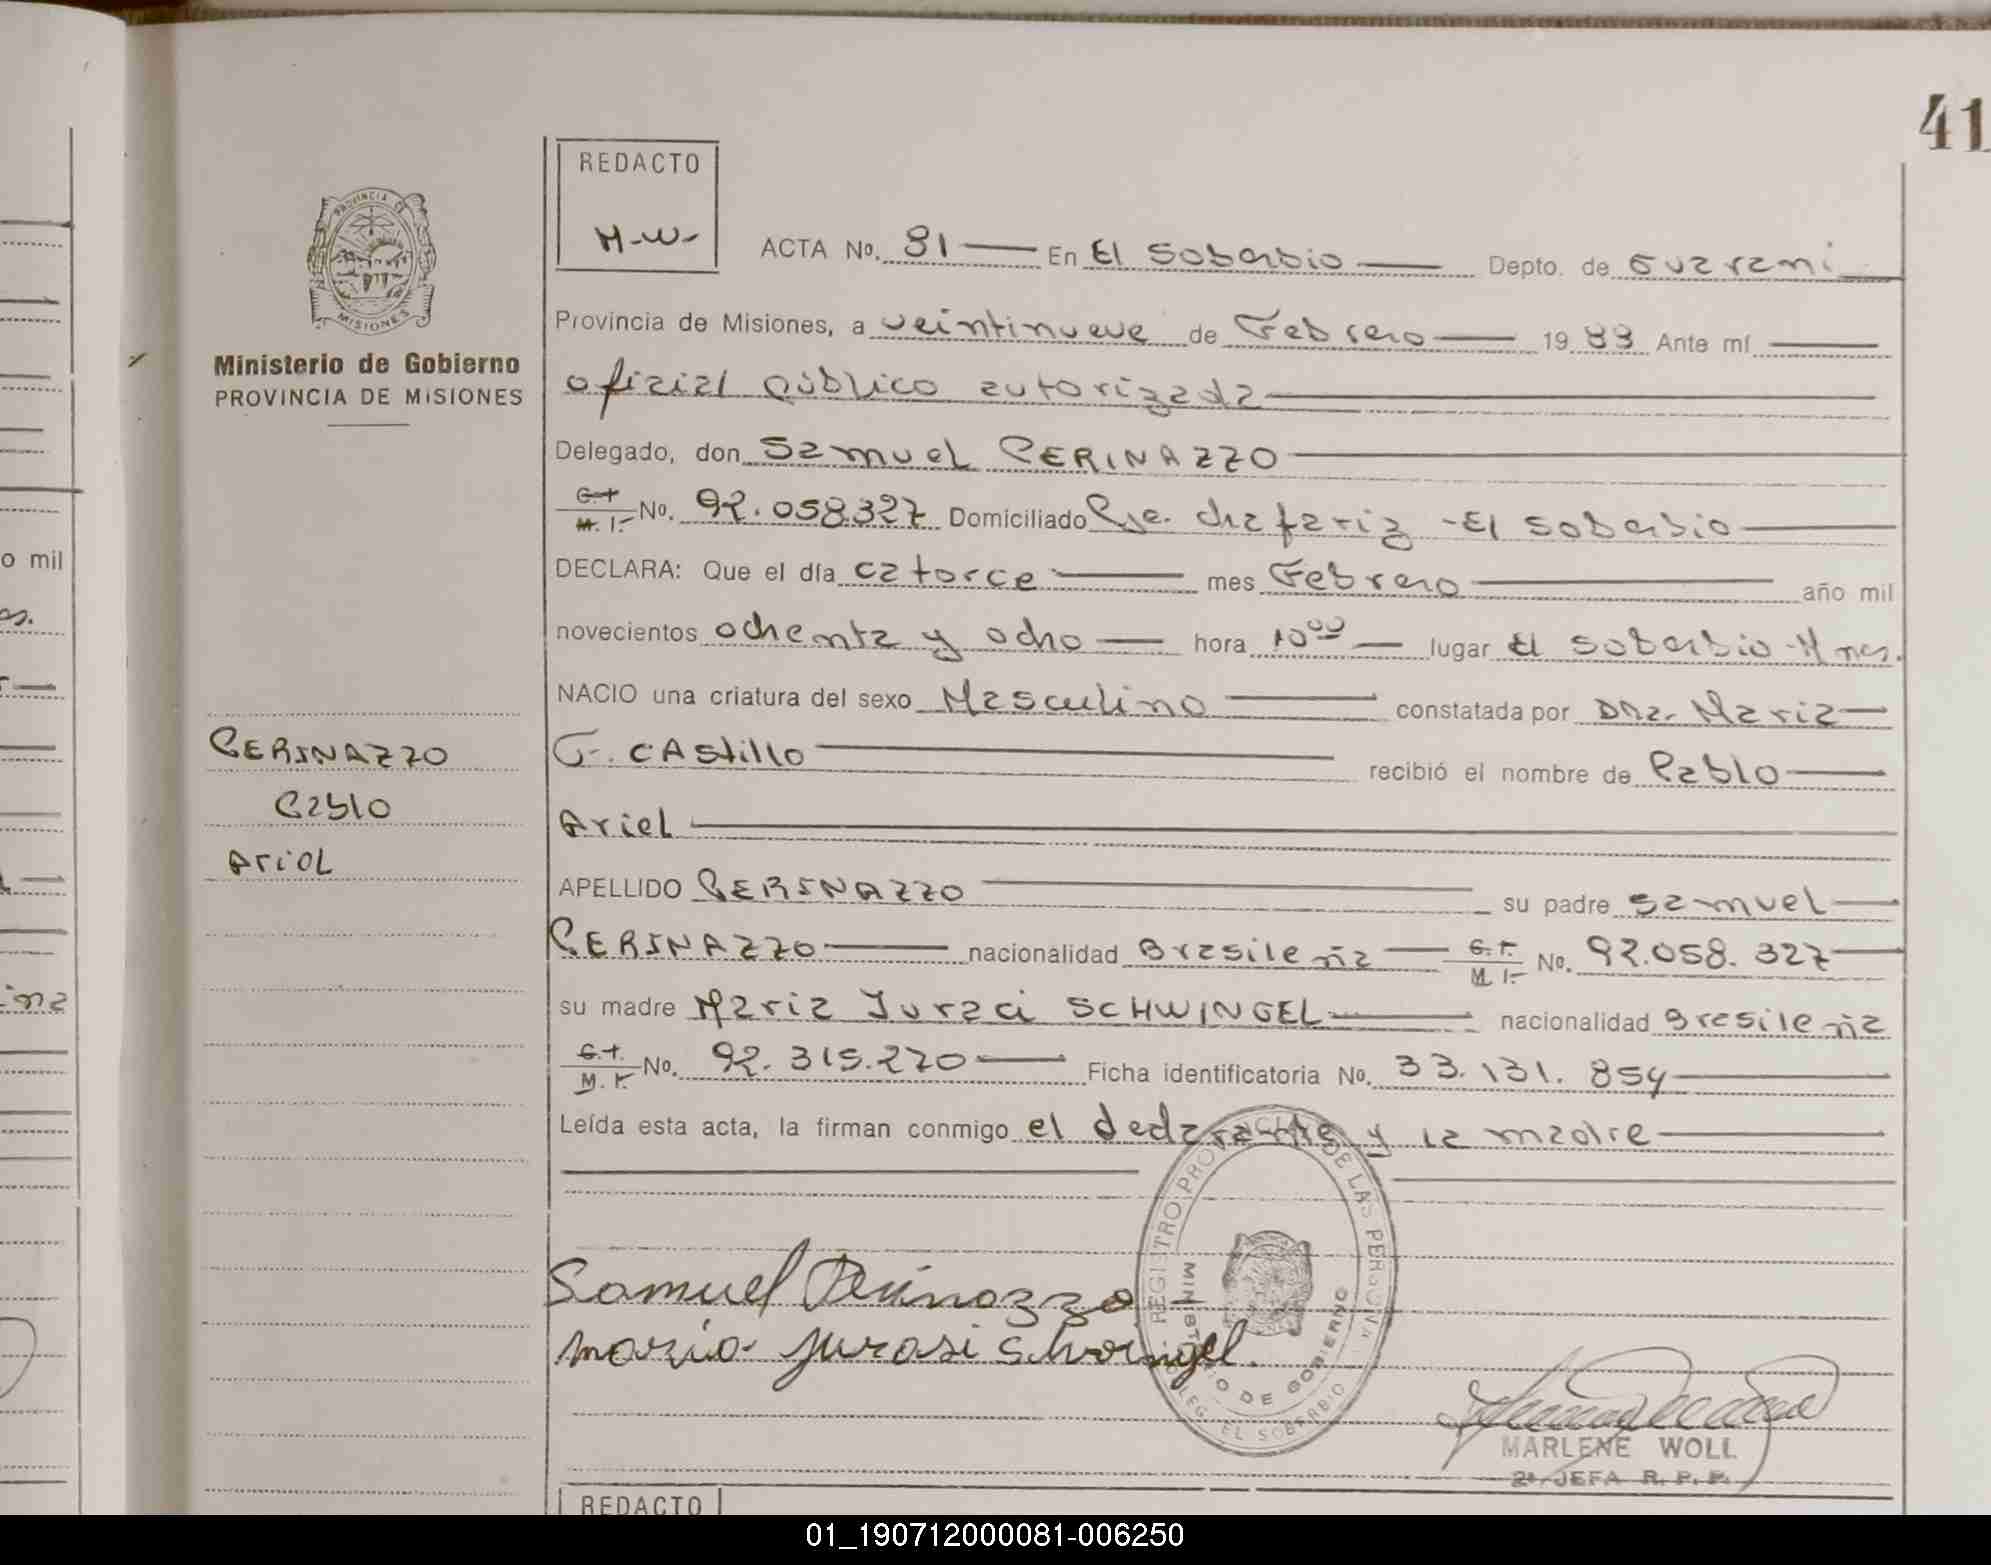 41
REDACTO
M-W-
PROVINCIA DE
MISIONES
Ministerio de Gobierno
PROVINCIA DE MISIONES
ACTA No. 81 En El Soberbio Depto. de Guarani
Provincia de Misiones, a veintinueve de Febrero 1988 Ante mí
oficial público autorizada
Delegado, don Samuel PERINAZZO
M. I. No. 92.058.327 Domiciliado Pje. chafariz - El Soberbio
DECLARA: Que el día catorce mes Febrero año mil
novecientos ochenta y ocho hora 10⁰⁰ lugar El Soberbio - Mnes.
NACIO una criatura del sexo Masculino constatada por Dña. Maria
G. CAstillo recibió el nombre de Pablo
Ariel
APELLIDO PERINAZZO su padre Samuel
PERINAZZO nacionalidad Brasileña M. I. No. 92.058.327
su madre Maria Juraci SCHWINGEL nacionalidad Brasileña
M. I. No. 92.315.270 Ficha identificatoria No. 33.131.854
Leída esta acta, la firman conmigo el declarante y la madre
PERINAZZO
Pablo
Ariel
Samuel Perinazzo
Maria Jurasi Schwingel.
REGISTRO PROVINCIAL DE LAS PERSONAS
MINISTERIO DE GOBIERNO
DELEG. EL SOBERBIO
MARLENE WOLL
2ª JEFA R. P. P.
REDACTO
o mil
01_190712000081-006250